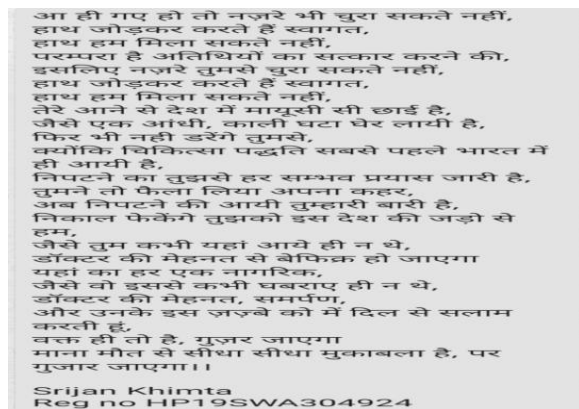 आ ही गए हो तो नज़रे भी चुरा सकते नहीं,
हाथ जोड़कर करते हैं स्वागत,
हाथ हम मिला सकते नहीं,
परम्परा है अतिथियों का सत्कार करने की,
इसलिए नज़रे तुमसे चुरा सकते नहीं,
हाथ जोड़कर करते हैं स्वागत,
हाथ हम मिला सकते नहीं,
तेरे आने से देश में मायूसी सी छाई है,
जैसे एक आंधी, काली घटा घेर लायी है,
फिर भी नही डरेंगे तुमसे,
क्योंकि चिकित्सा पद्धति सबसे पहले भारत में
ही आयी है,
निपटने का तुझसे हर सम्भव प्रयास जारी है,
तुमने तो फैला लिया अपना कहर,
अब निपटने की आयी तुम्हारी बारी है,
निकाल फेकेंगे तुझको इस देश की जड़ो से
हम,
जैसे तुम कभी यहां आये ही न थे,
डॉक्टर की मेहनत से बेफिक्र हो जाएगा
यहां का हर एक नागरिक,
जैसे वो इससे कभी घबराए ही न थे,
डॉक्टर की मेहनत, समर्पण,
और उनके इस ज़ज़्बे को में दिल से सलाम
करती हूं,
वक्त ही तो है, गुज़र जाएगा
माना मौत से सीधा सीधा मुकाबला है, पर
गुजार जाएगा।।
Srijan Khimta
Reg no HP19SWA304924